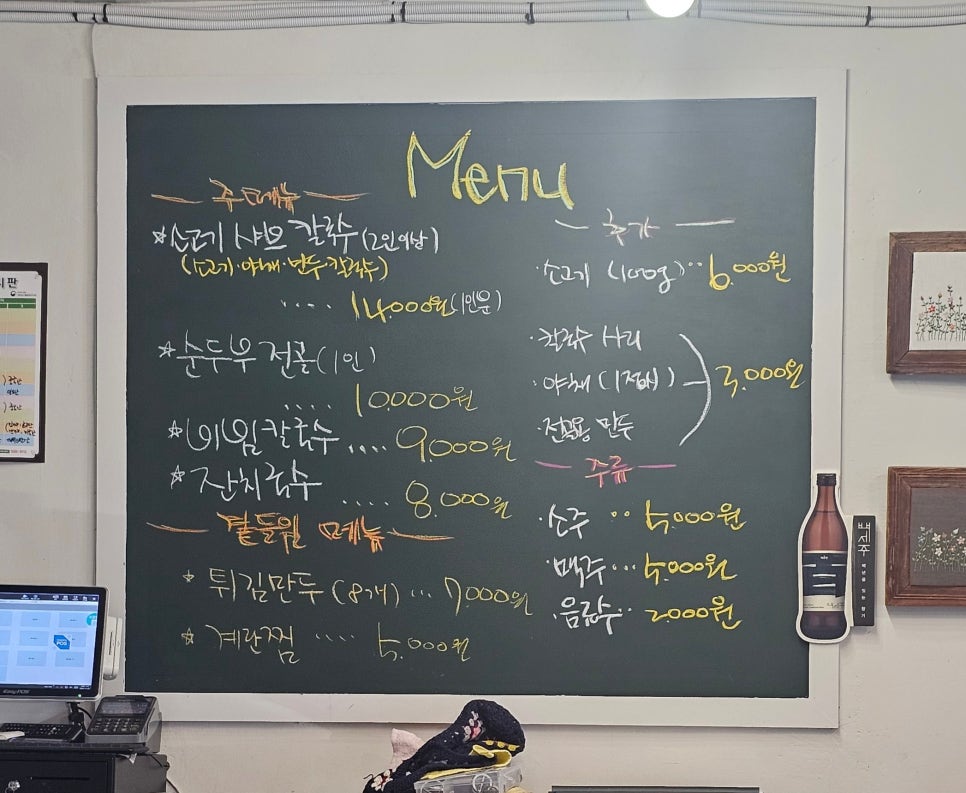 Menu
주 메뉴
☆소고기 샤브 칼국수 (2인이상)
(소고기·야채·만두·칼국수)
.... 14.000원 (1인분)
☆순두부 전골 (1인)
.... 10.000원
☆비빔칼국수 .... 9.000원
☆잔치국수 .... 8.000원
곁들임 메뉴
☆튀김만두 (8개) ... 7.000원
☆계란찜 .... 5.000원
추가
·소고기 (100g) ·· 6.000원
·칼국수 사리
·야채 (1접시) 3.000원
·전골용 만두
주류
·소주 ·· 5.000원
·맥주 ... 5.000원
·음료수 ·· 2.000원
백세주
EasyPOS